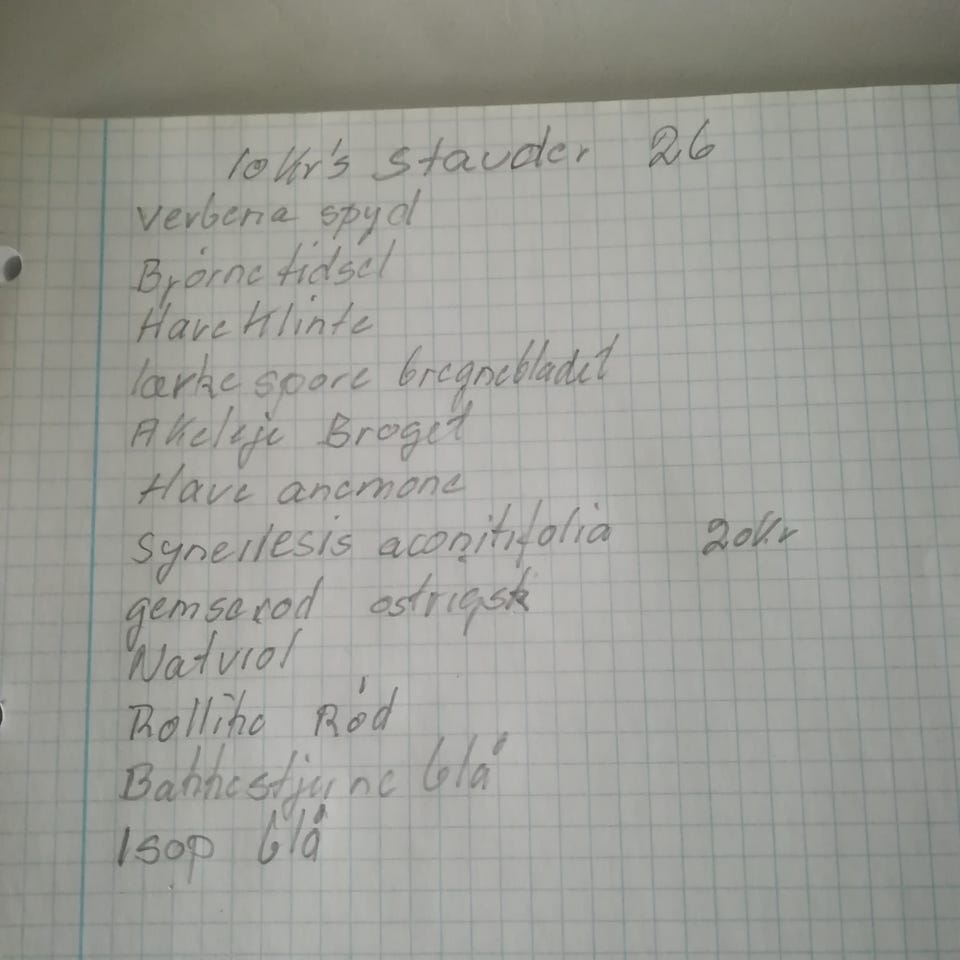 10Kr's Stauder 26
Verbena spyd
Bjørnetidsel
Have Klinte
lærke spore bregnebladet
Akeleje Broget
Have anemone
Syneilesis aconitifolia 20Kr
gemserod østrigsk
Natviol
Rolliko Rød
Bakkestjerne blå
Isop blå